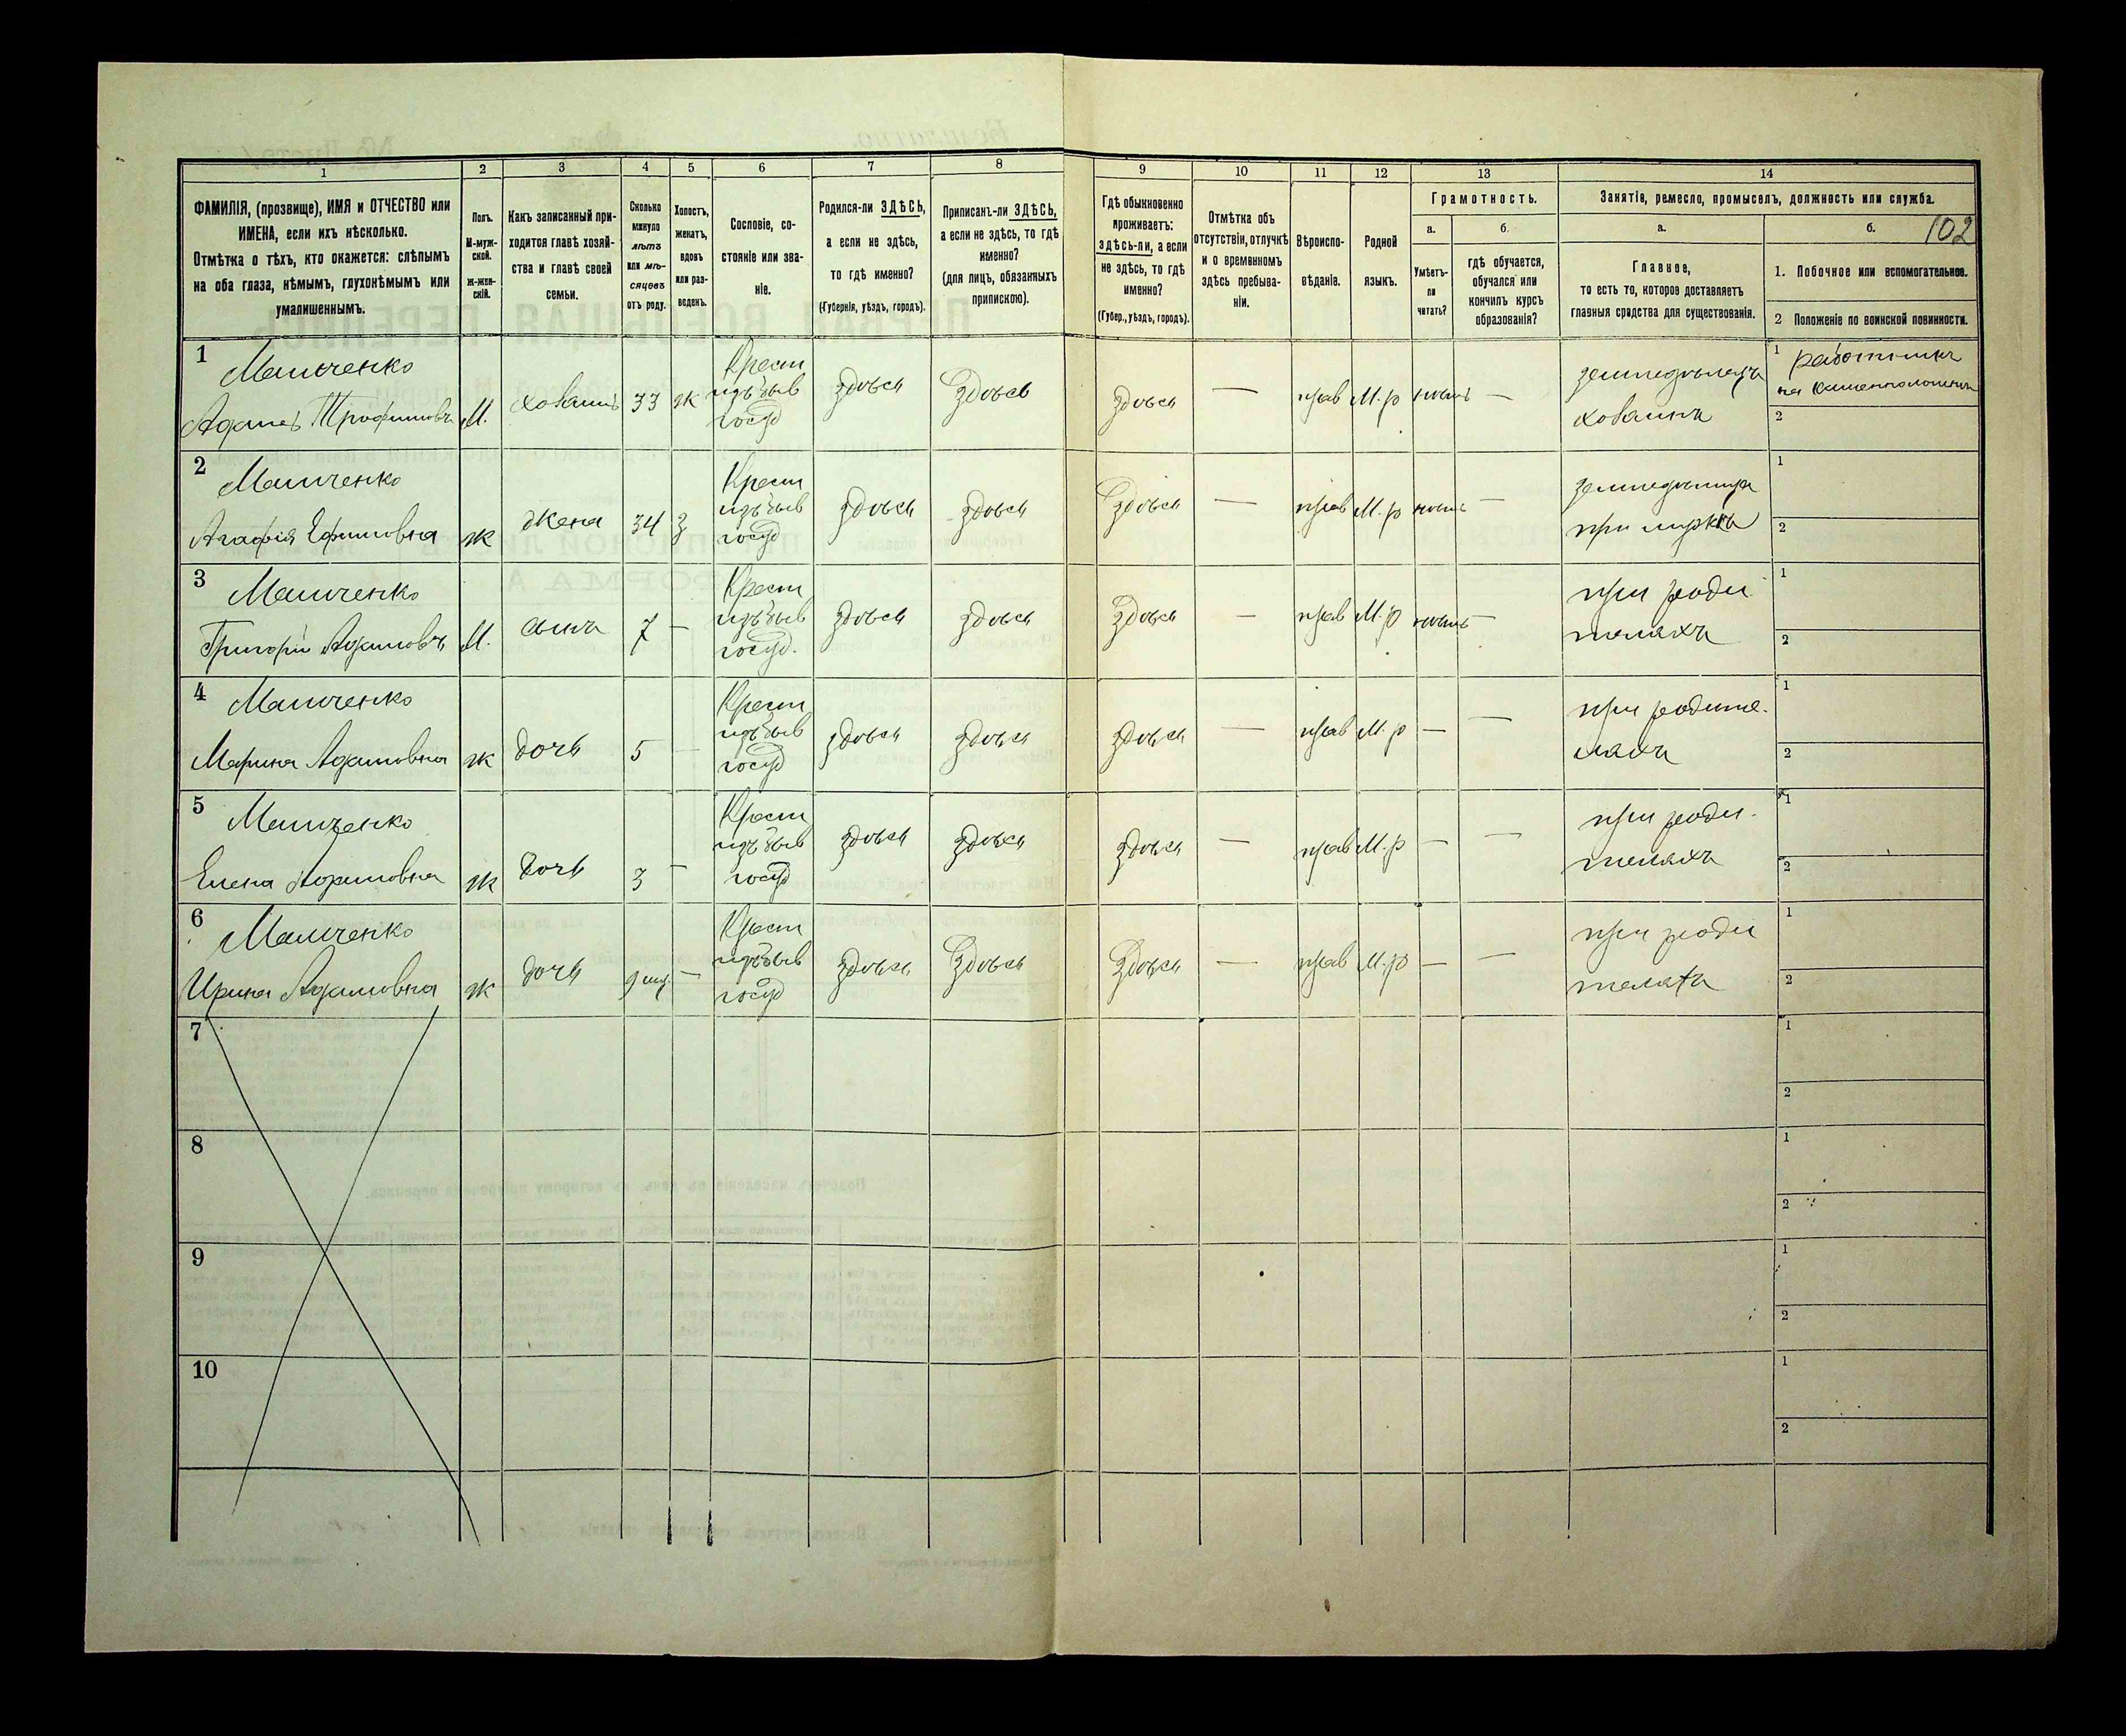 102
1 2 3 4 5 6 7 8 9 10 11 12 13 14
ФАМИЛІЯ, (прозвище), ИМЯ и ОТЧЕСТВО или
ИМЕНА, если ихъ нѣсколько.
Отмѣтка о тѣхъ, кто окажется: слѣпымъ
на оба глаза, нѣмымъ, глухонѣмымъ или
умалишеннымъ.
Полъ.
М-муж-
ской.
Ж-жен-
скій.
Какъ записанный при-
ходится главѣ хозяй-
ства и главѣ своей
семьи.
Сколько
минуло
лѣтъ
или мѣ-
сяцевъ
отъ роду.
Холостъ,
женатъ,
вдовъ
или раз-
веденъ.
Сословіе, со-
стояніе или зва-
ніе.
Родился-ли ЗДѢСЬ,
а если не здѣсь,
то гдѣ именно?
(Губернія, уѣздъ, городъ).
Приписанъ-ли ЗДѢСЬ,
а если не здѣсь, то гдѣ
именно?
(для лицъ, обязанныхъ
припискою).
Гдѣ обыкновенно
проживаетъ:
здѣсь-ли, а если
не здѣсь, то гдѣ
именно?
(Губер., уѣздъ, городъ).
Отмѣтка объ
отсутствіи, отлучкѣ
и о временномъ
здѣсь пребыва-
ніи.
Вѣроиспо-
вѣданіе.
Родной
языкъ.
Грамотность.
а.
Умѣетъ-
ли
читать?
б.
гдѣ обучается,
обучался или
кончилъ курсъ
образованія?
Занятіе, ремесло, промыселъ, должность или служба.
а.
Главное,
то есть то, которое доставляетъ
главныя средства для существованія.
б.
1. Побочное или вспомогательное.
2 Положеніе по воинской повинности.
1
Адамъ Трофимовъ М. хозяинъ 33 ж Крест изъ быв госуд здѣсь здѣсь здѣсь — прав М.р —
земледѣлецъ
хозяинъ
1 работникъ
на
2
2
Агафія Ефимовна ж жена 34 з Крест изъ быв госуд здѣсь здѣсь здѣсь — прав М.р —
при мужѣ
1
2
3
Григорій Адамовъ М. сынъ 7 — Крест изъ быв госуд. здѣсь здѣсь здѣсь — прав М.р —
при роди
теляхъ
1
2
4
Марина Адамовна ж дочь 5 — Крест изъ быв госуд здѣсь здѣсь здѣсь — прав М.р — —
при родите-
ляхъ
1
2
5
Елена Адамовна ж дочь 3 — Крест изъ быв госуд здѣсь здѣсь здѣсь — прав М.р — —
при роди-
теляхъ
1
2
6
Ирина Адамовна ж дочь 9 мц. — Крест изъ быв госуд здѣсь здѣсь здѣсь — прав М.р — —
при роди
теляхъ
1
2
7
1
2
8
1
2
9
1
2
10
1
2